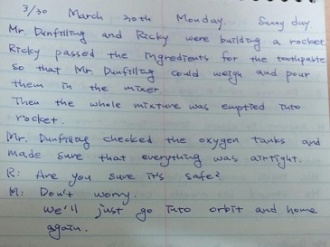 3/30 March 30th Monday. Sunny day
Mr. Dunfilling and Ricky were building a rocket.
Ricky passed the ingredients for the toothpaste
so that Mr. Dunfilling could weigh and pour
them in the mixer.
Then the whole mixture was emptied into
rocket.
Mr. Dunfilling checked the oxygen tanks and
made sure that everything was airtight.
R: Are you sure it's safe?
M: Don't worry.
we'll just go into orbit and home
again.